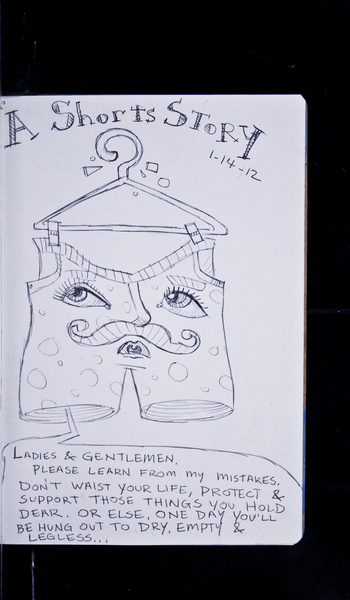 A Shorts Story
1-14-12
Ladies & Gentlemen,
Please learn from my mistakes,
Don't waist your life, protect &
support those things you hold
dear. Or else, one day you'll
be hung out to dry, empty &
legless...